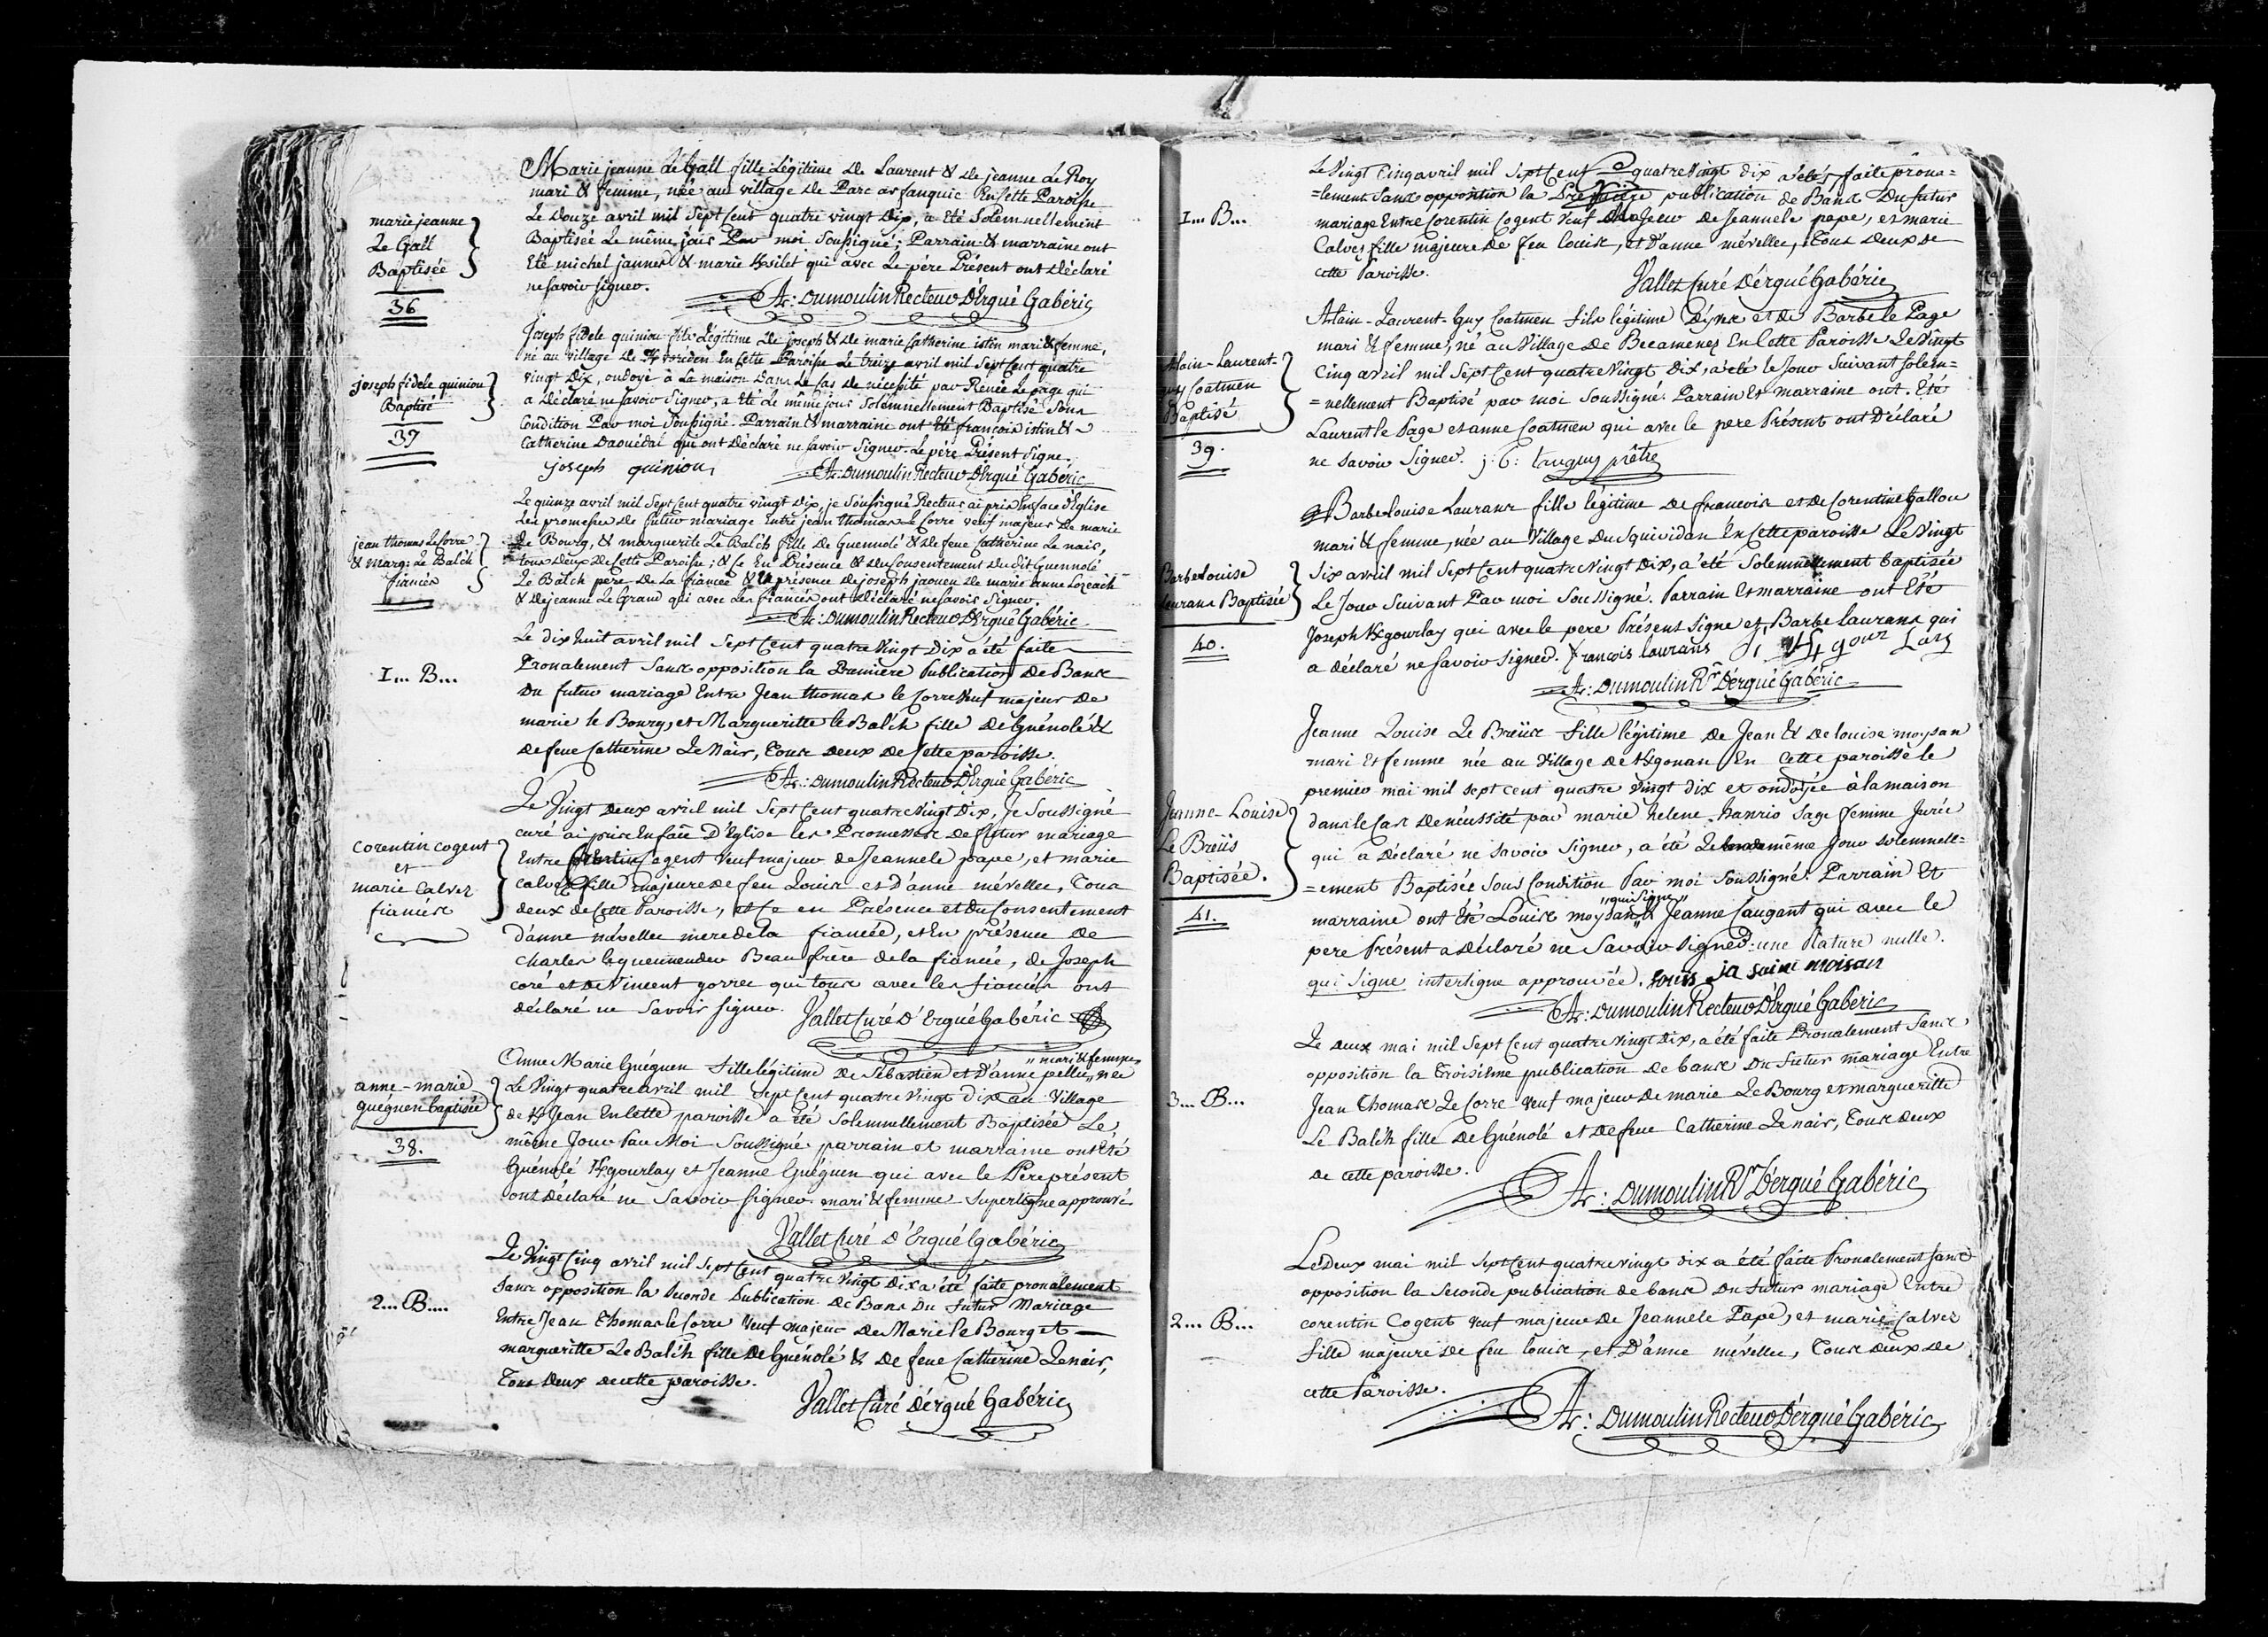 marie jeanne
Le Gall
Baptisée
36
Marie jeanne Le Gall fille Légitime de Laurent & de jeanne Le Roy
mari & femme, née au village de Parc ar fanquic En cette Paroisse
Le Douze avril mil Sept Cent quatre vingt Dix, a Eté Solemnellement
Baptisée Le même jour Par moi Soussigné; Parrain & marraine ont
Eté michel jannes & marie qui avec Le pére Présent ont Déclaré
ne savoir signer.
At: Dumoulin Recteur D'Ergué Gabéric
joseph fidele quiniou
Baptisé
37
Joseph fidele quiniou fils Légitime de joseph & de marie Catherine istin mari & femme,
né au village de En cette Paroisse Le treize avril mil Sept Cent quatre
vingt Dix, ondoyé à La maison Dans Le Cas de nécessité par Renée Le page qui
a Déclaré ne savoir Signer, a Eté Le même jour Solemnellement Baptisé Sous
Condition Par moi Soussigné. Parrain & marraine ont Eté francois istin &
Catherine Daouëdal qui ont Déclaré ne savoir Signer. Le pére Présent Signe.
joseph quiniou
At: Dumoulin Recteur D'Ergué Gabéric
jean thomas Le Corre
& marg: Le Balc'h
fiancés
Le quinze avril mil Sept Cent quatre vingt Dix, je Soussigné Recteur ai pris En face d'Eglise
Les promesses de futur mariage Entre jean thomas Le Corre veuf majeur de marie
Le Bourg, & marguerite Le Balc'h fille de Guennolé & de feue Catherine Le nair,
tous deux de Cette Paroisse; & Ce En Présence & du Consentement du dit Guennolé
Le Balc'h pere de La fiancée & En présence de joseph jaouen de marie anne Lozeach
& de jeanne Le Grand qui avec Les fiancés ont Déclaré ne savoir signer.
At: Dumoulin Recteur D'Ergué Gabéric
1... B...
Le dix huit avril mil Sept Cent quatre Vingt Dix a été faite
Pronalement Sans opposition la Premiere Publication De Bans
Du futur mariage Entre Jean thomas le Corre Veuf majeur De
marie le Bourg, et Margueritte le Balc'h fille De Guénolé &
de feue Catherine Le Nair, Tous deux de Cette paroisse.
At: Dumoulin Recteur D'Ergué Gabéric
corentin cogent
et
marie Calvez
fiancés
Le Vingt Deux avril mil Sept Cent quatre Vingt Dix, Je Soussigné
curé ai pris En face D'Eglise les Promesses de futur mariage
Entre Corentin Cogent Veuf majeur de Jeanne le pape, et marie
calvez fille majeure de feu Louis et D'anne mévellec, Tous
deux de Cette Paroisse, et Ce en Présence et du Consentement
d'anne mévellec mere de la fiancée, et En présence de
charles le quemeneur Beau frère de la fiancée, de Joseph
coré et de Vincent gorrec qui tous avec les fiancés ont
déclaré ne Savoir signer. Vallet Curé D'Ergué Gabéric
anne-marie
guéguen baptisée
38.
"mari & femme
Anne Marie Guéguen fille légitime de Sébastien et D'anne pellé, née
Le Vingt quatre avril mil Sept Cent quatre Vingt Dix au Village
de Jean En Cette paroisse a été Solemnellement Baptisée Le
même Jour Par Moi Soussigné parrain et marraine ont Eté
Guénolé Kgourlay et Jeanne Guéguen qui avec le Pere présent
ont Déclaré ne Savoir signer. mari & femme Superligne approuvé.
Vallet Curé D'Ergué Gabéric
2... B....
Le Vingt Cinq avril mil Sept Cent quatre Vingt Dix a été faite pronalement
Sans opposition la Seconde Publication De Bans Du futur Mariage
Entre Jean Thomas le Corre Veuf majeur de Marie le Bourg et
margueritte Le Balc'h fille De Guénolé & de feue Catherine Le nair,
Tous Deux de cette paroisse.
Vallet Curé D'ergué Gabéric
1... B...
Le Vingt Cinq avril mil Sept Cent quatre Vingt dix a été faite prona=
=lement Sans opposition la Premiere publication de Bans Du futur
mariage Entre Corentin Cogent Veuf de Jeanne le pape, et marie
Calvez fille majeure de feu louis, et d'anne mévellec, Tous Deux de
cette Paroisse.
Vallet Curé D'ergué Gabéric
Alain-Laurent-
guy Coatmen
Baptisé
39.
Alain-Laurent-Guy Coatmen fils légitime D'yves et de Barbe le Page
mari & femme, né au Village de Becamenez En Cette Paroisse Le Vingt
Cinq avril mil Sept Cent quatre Vingt Dix, a été le Jour Suivant Solem=
=nellement Baptisé par moi Soussigné. Parrain et marraine ont Eté
Laurent le Page et anne Coatmen qui avec le pere Présent ont Déclaré
ne Savoir Signer. j: C: tanguy prêtre
Barbe Louise
Laurans Baptisée
40.
Barbe Louise Laurans fille légitime de francois et de Corentine Gallou
mari & femme, née au Village du Squividan En Cette paroisse Le Vingt
Six avril mil Sept Cent quatre Vingt Dix, a été Solemnellement baptisée
Le Jour Suivant Par moi Soussigné. Parrain et marraine ont Eté
Joseph Kgourlay qui avec le pere Présent Signe et, Barbe Laurans qui
a déclaré ne Savoir Signer. François laurans J, K gour Lay
At: Dumoulin Rr D'ergué Gabéric
Jeanne-Louise
Le Breüs
Baptisée.
41.
Jeanne Louise Le Breüs fille légitime de Jean & de louise moysan
mari Et femme née au Village de Kgonan En Cette paroisse le
premier mai mil Sept cent quatre Vingt dix et ondoyée à la maison
dans le Cas de nécessité par marie helene hanrio Sage femme Jurée
qui a déclaré ne Savoir Signer, a été Le même Jour Solemnell=
=ement Baptisée Sous Condition Par moi Soussigné. Parrain Et
"qui Signe"
marraine ont Eté Louis moysan & Jeanne Caugant qui avec le
pere Présent a déclaré ne Savoir Signer: une Rature nulle.
qui Signe interligne approuvée. Louis moisan
At: Dumoulin Recteur D'Ergué Gabéric
3... B...
Le deux mai mil Sept Cent quatre Vingt Dix, a été faite Pronalement Sans
opposition la Troisième publication de bans Du futur mariage Entre
Jean Thomas Le Corre Veuf majeur de marie Le Bourg et margueritte
Le Balc'h fille de Guénolé et de feue Catherine Le nair, Tous deux
de cette paroisse.
At: Dumoulin Rr D'ergué Gabéric
2... B...
Le Deux mai mil Sept Cent quatre Vingt dix a été faite Pronalement Sans
opposition la Seconde publication de bans Du futur mariage Entre
corentin Cogent Veuf majeur de Jeanne le Pape, et marie Calvez
fille majeure de feu louis, et D'anne mévellec, Tous deux de
cette Paroisse.
At: Dumoulin Recteur D'ergué Gabéric